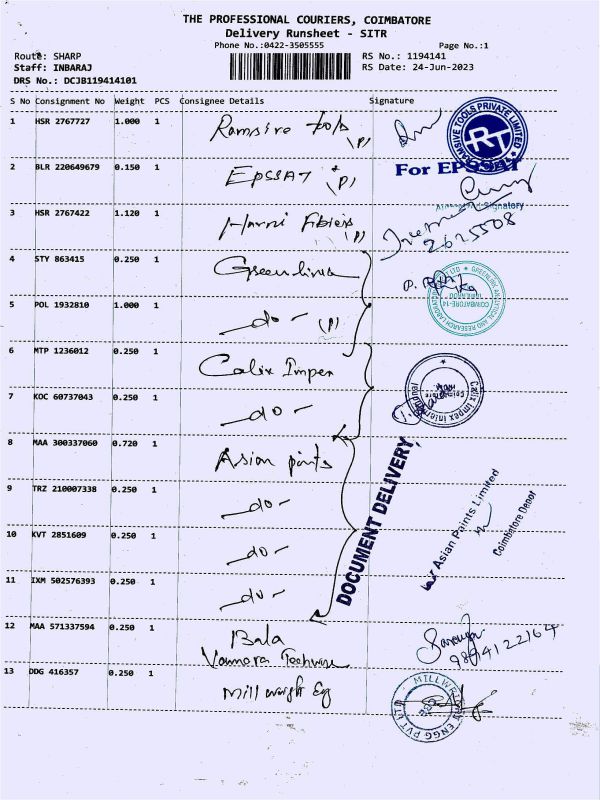 THE PROFESSIONAL COURIERS, COIMBATORE
Delivery Runsheet - SITR
Phone No.:0422-3505555 Page No.:1
Route: SHARP RS No.: 1194141
Staff: INBARAJ RS Date: 24-Jun-2023
DRS No.: DCJB119414101
S No Consignment No Weight PCS Consignee Details Signature
1 HSR 2767727 1.000 1 Ramsive tools (P)
RAMSIVE TOOLS PRIVATE LIMITED
RT
2 BLR 220649679 0.150 1 EPSSAT (P)
For EPSSAT
Authorised Signatory
3 HSR 2767422 1.120 1 Fibers (P)
2625508
4 STY 863415 0.250 1 Greenlink
GREENLINK ANALYTICAL AND RESEARCH LABORATORY
COIMBATORE-14
5 POL 1932810 1.000 1 -do- (P)
6 MTP 1236012 0.250 1 Calix Impex
Calix Impex International
Coimbatore
7 KOC 60737043 0.250 1 -do-
8 MAA 300337060 0.720 1 Asian paints
DOCUMENT DELIVERY
For Asian Paints Limited
Coimbatore Depot
9 TRZ 210007338 0.250 1 -do-
10 KVT 2851609 0.250 1 -do-
11 IXM 502576393 0.250 1 -do-
12 MAA 571337594 0.250 1 Bala
9894122164
13 DDG 416357 0.250 1 Millwright Eg
MILLWRIGHT ENGG PVT LTD
CBE